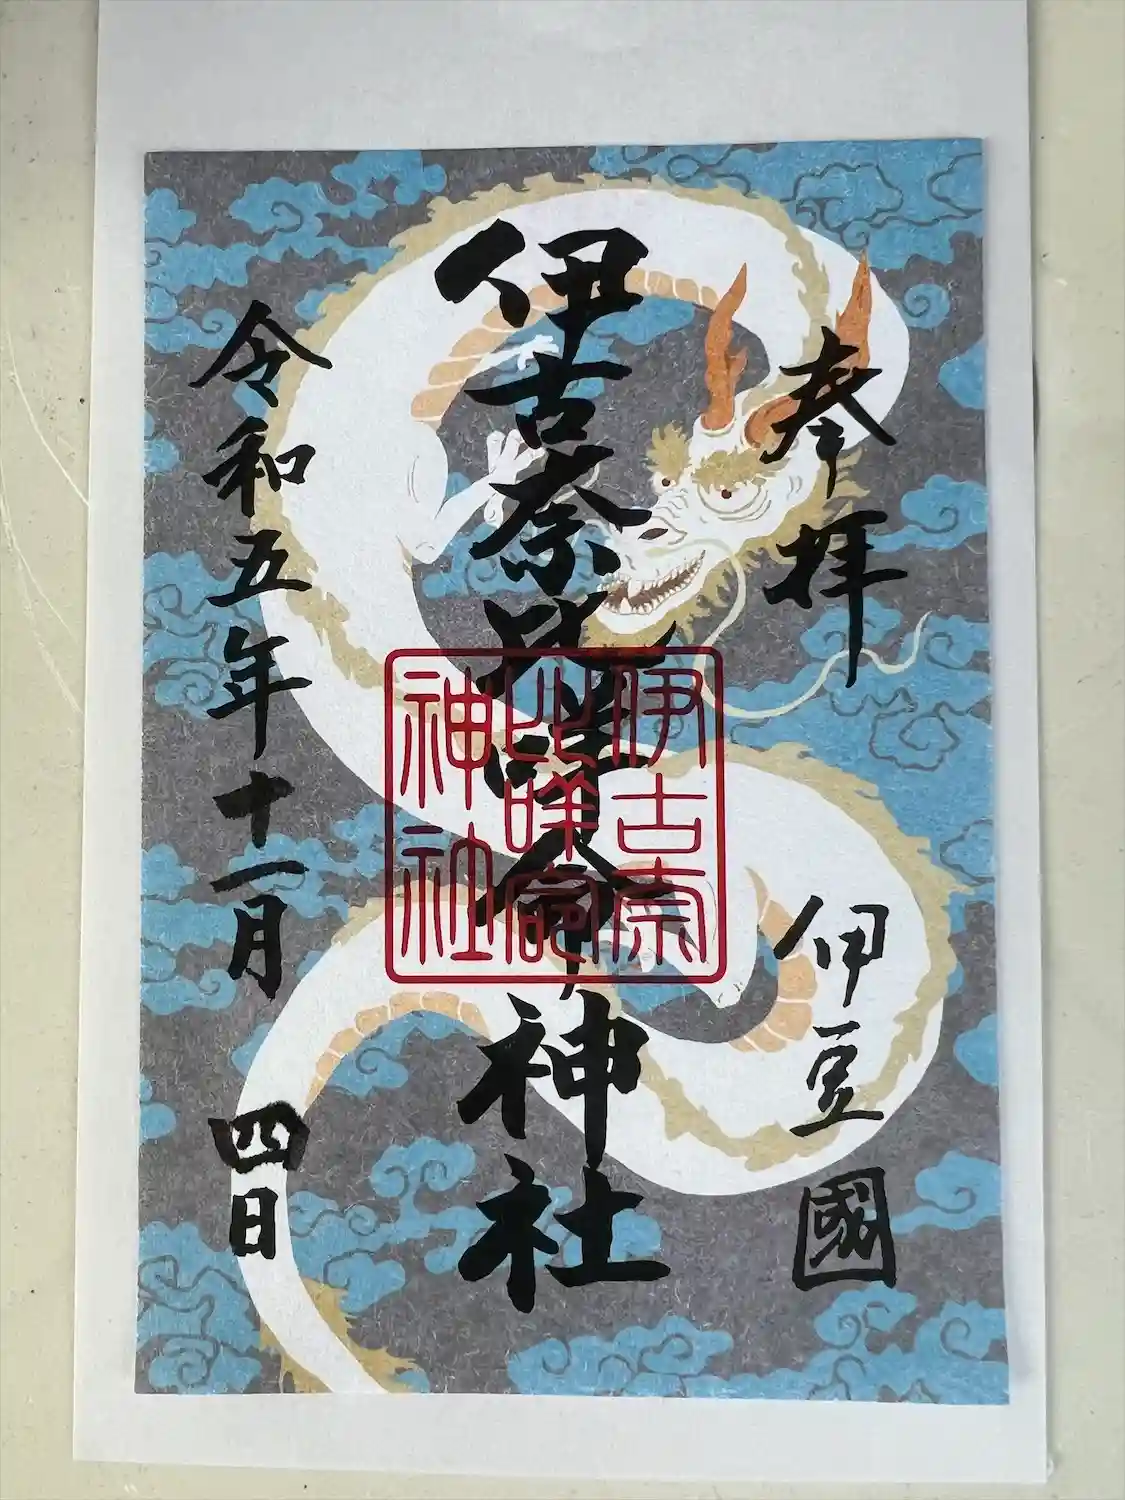 奉拝
伊豆國
伊古奈比咩命神社
伊古奈
比咩命
神社
令和五年十一月四日